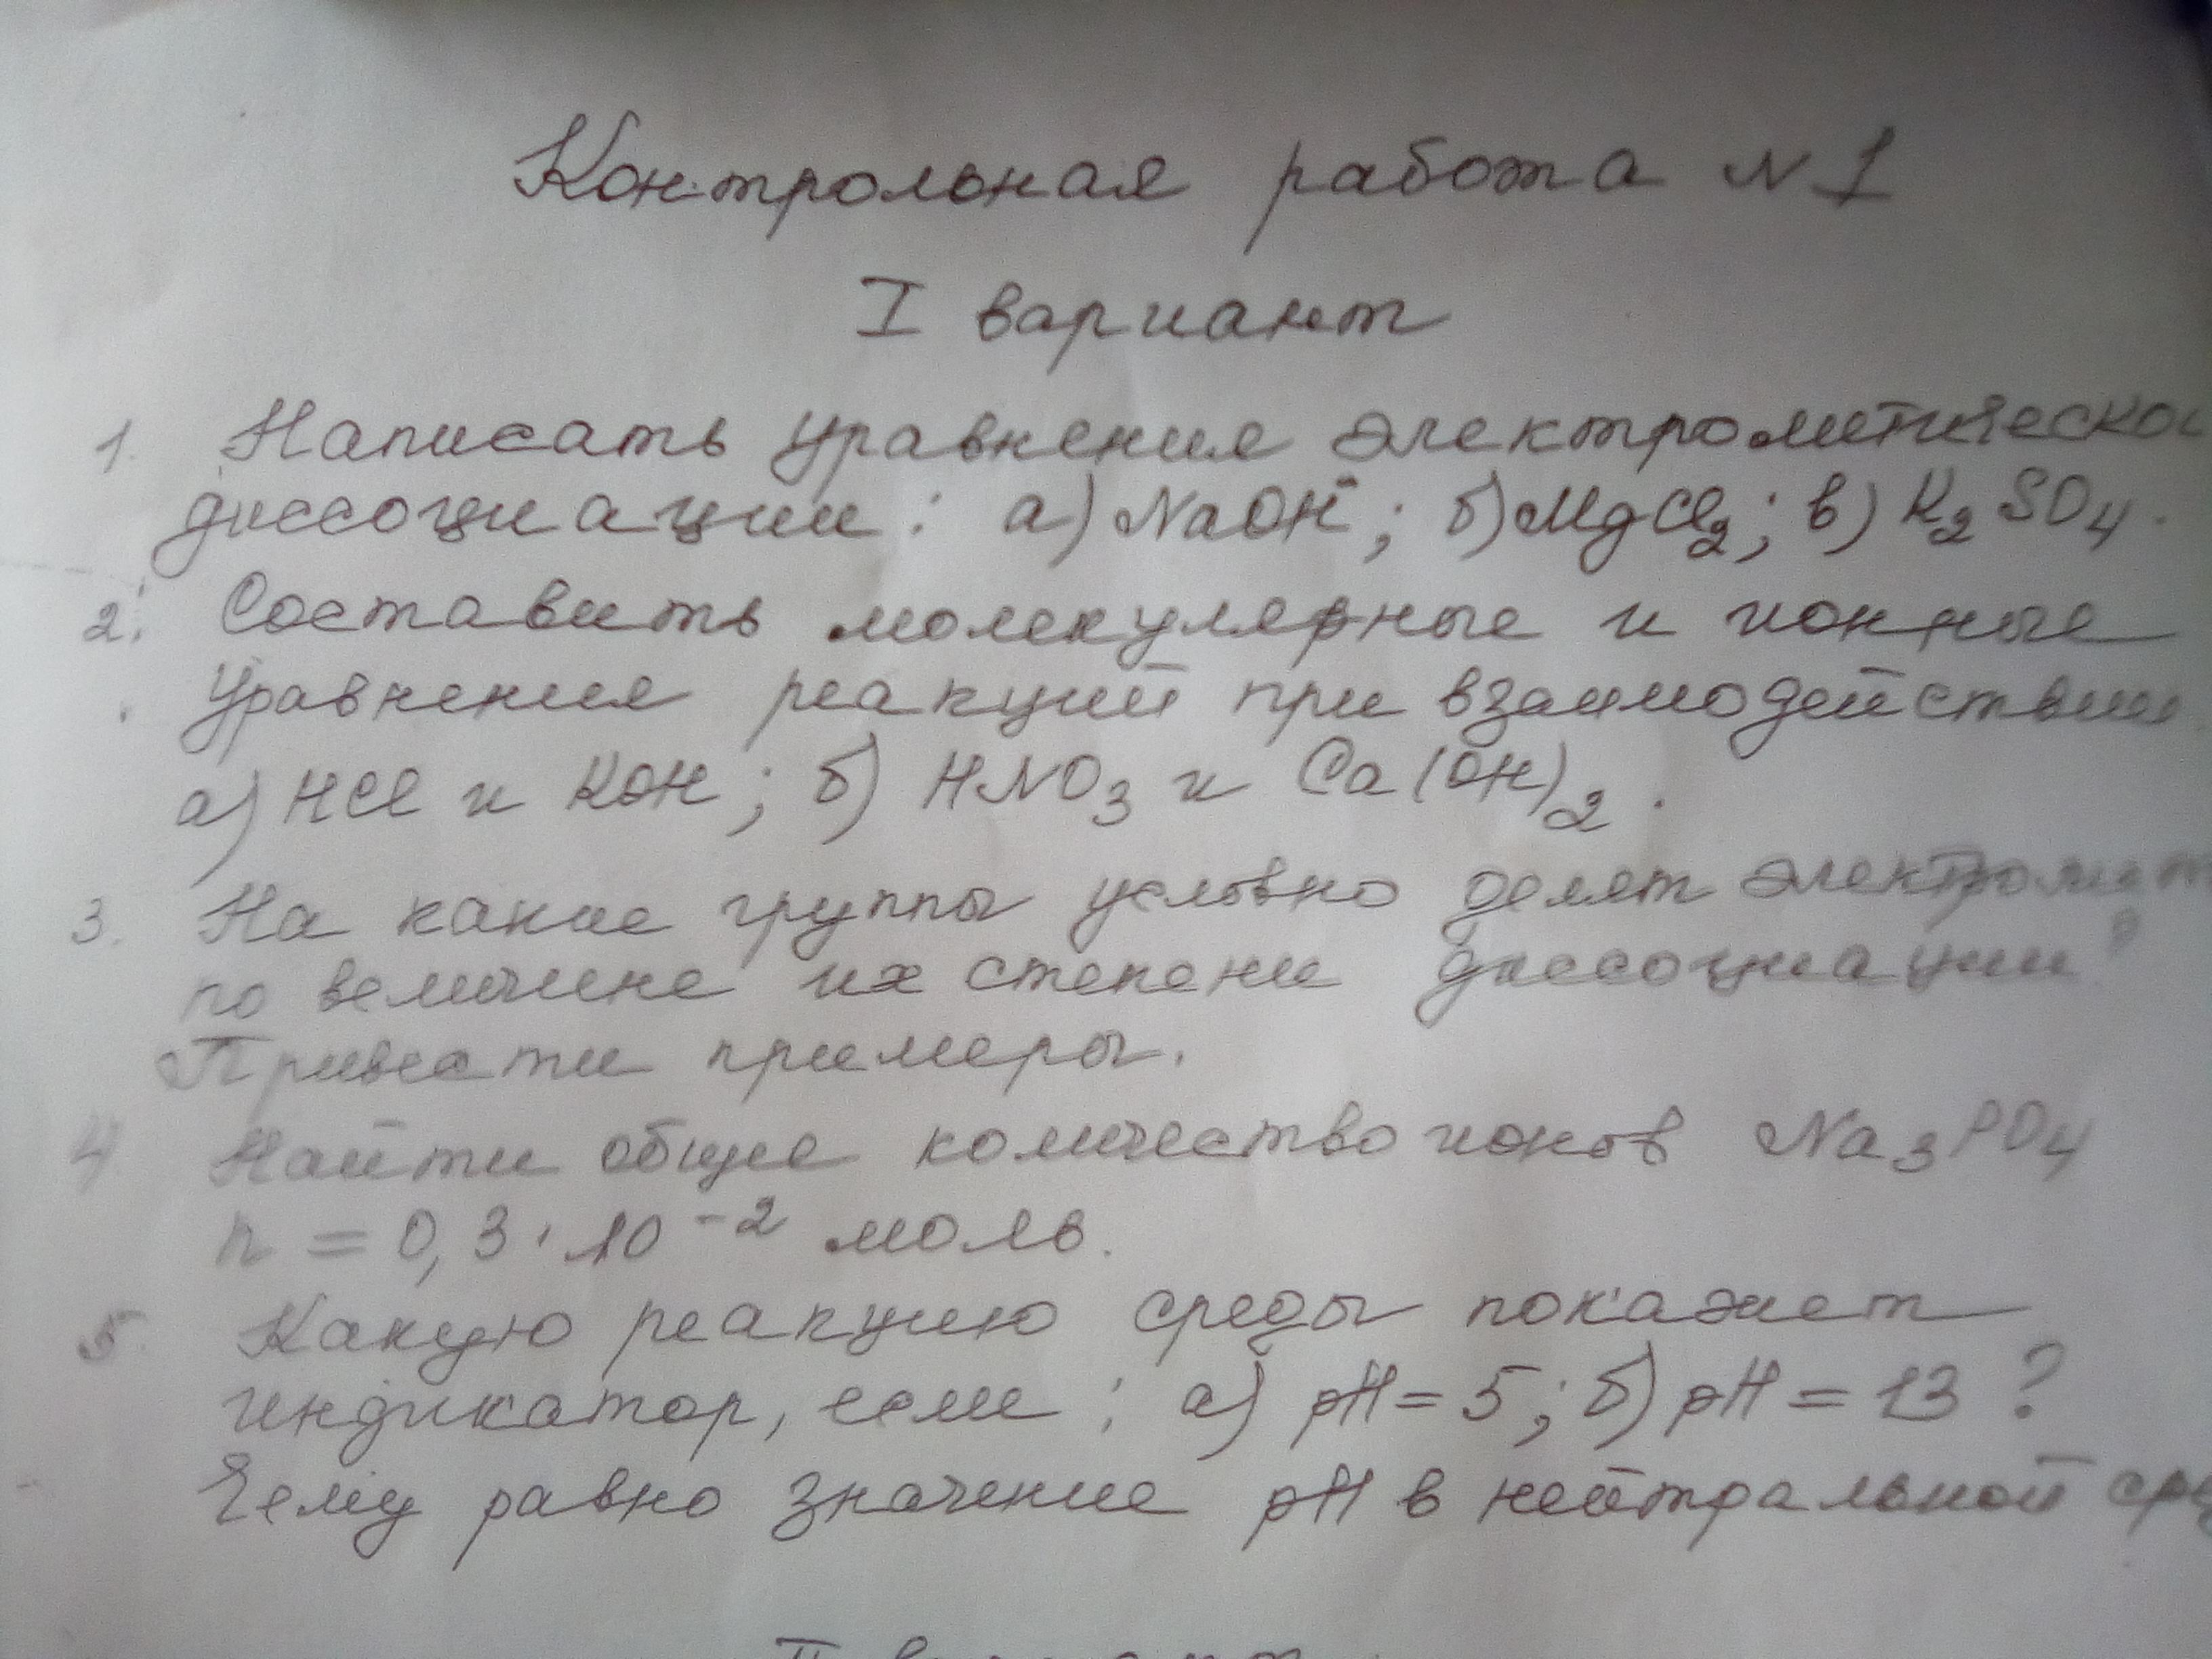 Контрольная работа N 1
I вариант
1. Написать уравнения электролитическо
диссоциации : а) NaOH ; б) MgCl₂ ; в) K₂SO₄.
2. Составить молекулярные и ионные
уравнения реакций при взаимодействии
а) HCl и KOH ; б) HNO₃ и Ca(OH)₂ .
3. На какие группы условно делят электролит
по величине их степени диссоциации?
Привести примеры.
4 Найти общее количество ионов Na₃PO₄
n = 0,3 · 10⁻² моль.
5. Какую реакцию среды покажет
индикатор, если : а) pH = 5 ; б) pH = 13 ?
Чему равно значение pH в нейтральной сре